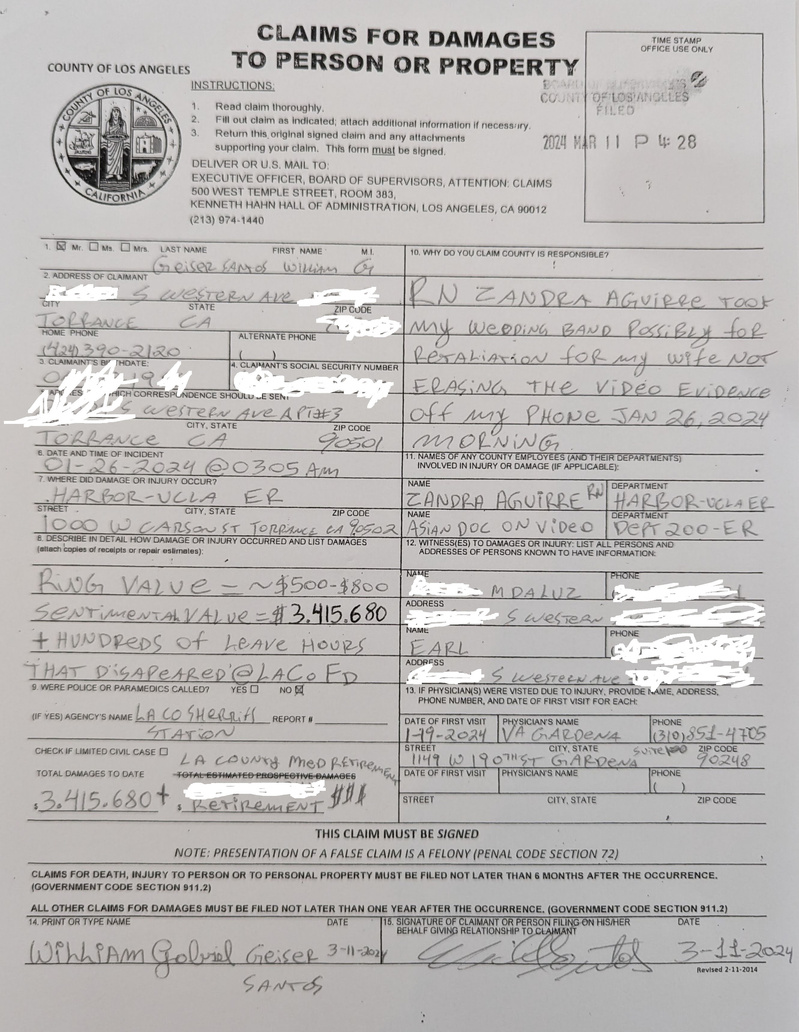 CLAIMS FOR DAMAGES
TO PERSON OR PROPERTY
COUNTY OF LOS ANGELES
COUNTY OF LOS ANGELES
CALIFORNIA
INSTRUCTIONS:
1. Read claim thoroughly.
2. Fill out claim as indicated; attach additional information if necessary.
3. Return this original signed claim and any attachments
supporting your claim. This form must be signed.
DELIVER OR U.S. MAIL TO:
EXECUTIVE OFFICER, BOARD OF SUPERVISORS, ATTENTION: CLAIMS
500 WEST TEMPLE STREET, ROOM 383,
KENNETH HAHN HALL OF ADMINISTRATION, LOS ANGELES, CA 90012
(213) 974-1440
TIME STAMP
OFFICE USE ONLY
BOARD OF SUPERVISORS
COUNTY OF LOS ANGELES
FILED
2024 MAR 11 P 4:28
1. ☒ Mr. ☐ Ms. ☐ Mrs. LAST NAME FIRST NAME M.I.
Geiser Santos William G
2. ADDRESS OF CLAIMANT
S WESTERN AVE
CITY STATE ZIP CODE
TORRANCE CA
HOME PHONE ALTERNATE PHONE
(424) 390-2120 ( )
3. CLAIMAINT'S BIRTHDATE: 4. CLAIMANT'S SOCIAL SECURITY NUMBER
WHICH CORRESPONDENCE SHOULD BE SENT
S WESTERN AVE APT#3
CITY, STATE ZIP CODE
TORRANCE CA 90501
6. DATE AND TIME OF INCIDENT
01-26-2024 @ 0305 AM
7. WHERE DID DAMAGE OR INJURY OCCUR?
HARBOR-UCLA ER
STREET CITY, STATE ZIP CODE
1000 W CARSON ST TORRANCE CA 90502
8. DESCRIBE IN DETAIL HOW DAMAGE OR INJURY OCCURRED AND LIST DAMAGES
(attach copies of receipts or repair estimates):
RING VALUE = ~$500-$800
SENTIMENTAL VALUE = $3.415.680
+ HUNDREDS OF LEAVE HOURS
THAT DISAPEARED @ LACO FD
9. WERE POLICE OR PARAMEDICS CALLED? YES ☐ NO ☒
(IF YES) AGENCY'S NAME LA CO SHERRIFF REPORT #
STATION
CHECK IF LIMITED CIVIL CASE ☐
LA COUNTY MED RETIREMENT
TOTAL DAMAGES TO DATE TOTAL ESTIMATED PROSPECTIVE DAMAGES
$3.415.680+ $ RETIREMENT $$$
10. WHY DO YOU CLAIM COUNTY IS RESPONSIBLE?
RN ZANDRA AGUIRRE TOOK
MY WEDDING BAND POSSIBLY FOR
RETALIATION FOR MY WIFE NOT
ERASING THE VIDEO EVIDENCE
OFF MY PHONE JAN 26, 2024
MORNING
11. NAMES OF ANY COUNTY EMPLOYEES (AND THEIR DEPARTMENTS)
INVOLVED IN INJURY OR DAMAGE (IF APPLICABLE):
NAME DEPARTMENT
ZANDRA AGUIRRE RN HARBOR-UCLA ER
NAME DEPARTMENT
ASIAN DOC ON VIDEO DEPT 200-ER
12. WITNESS(ES) TO DAMAGES OR INJURY: LIST ALL PERSONS AND
ADDRESSES OF PERSONS KNOWN TO HAVE INFORMATION:
NAME PHONE
M DALUZ
ADDRESS
S WESTERN
NAME PHONE
EARL
ADDRESS
S WESTERN AVE
13. IF PHYSICIAN(S) WERE VISTED DUE TO INJURY, PROVIDE NAME, ADDRESS,
PHONE NUMBER, AND DATE OF FIRST VISIT FOR EACH:
DATE OF FIRST VISIT PHYSICIAN'S NAME PHONE
1-19-2024 VA GARDENA (310)851-4705
STREET CITY, STATE ZIP CODE
1149 W 190TH ST GARDENA 90248
DATE OF FIRST VISIT PHYSICIAN'S NAME PHONE
( )
STREET CITY, STATE ZIP CODE
THIS CLAIM MUST BE SIGNED
NOTE: PRESENTATION OF A FALSE CLAIM IS A FELONY (PENAL CODE SECTION 72)
CLAIMS FOR DEATH, INJURY TO PERSON OR TO PERSONAL PROPERTY MUST BE FILED NOT LATER THAN 6 MONTHS AFTER THE OCCURRENCE.
(GOVERNMENT CODE SECTION 911.2)
ALL OTHER CLAIMS FOR DAMAGES MUST BE FILED NOT LATER THAN ONE YEAR AFTER THE OCCURRENCE. (GOVERNMENT CODE SECTION 911.2)
14. PRINT OR TYPE NAME DATE
William Gabriel Geiser 3-11-2024
SANTOS
15. SIGNATURE OF CLAIMANT OR PERSON FILING ON HIS/HER DATE
BEHALF GIVING RELATIONSHIP TO CLAIMANT
3-11-2024
Revised 2-11-2014